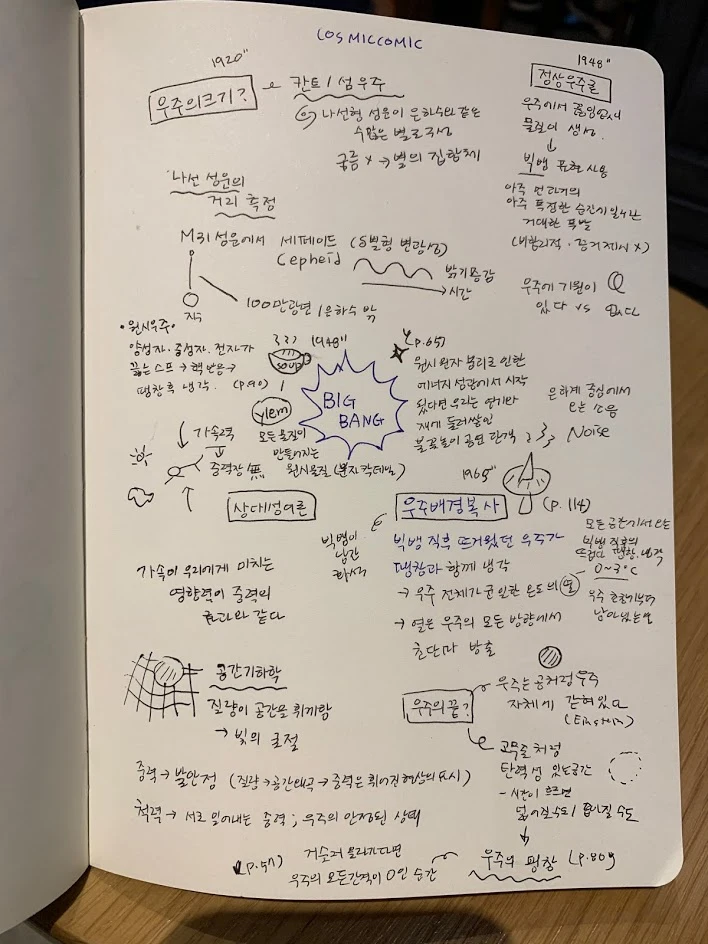 COSMICCOMIC
1920"
우주의크기?
칸트 / 섬우주
나선형 성운이 은하수와 같은
수많은 별로 구성
구름 x → 별의 집합체
1948"
정상우주론
우주에서 끊임없이
물질이 생성.
↓
빅뱅 표현 사용
아주 먼 과거의
아주 특정한 순간에 일어난
거대한 폭발
(비합리적 · 근거제시 x)
우주에 기원이
있다 vs 없다
나선 성운의
거리 측정
M31 성운에서 세페이드 (S별형 변광성)
Cepheid
밝기증감
→ 시간
지구
100만광년 / 은하수 밖
• 원시우주 •
양성자. 중성자. 전자가
끓는 스프 → 핵 반응 →
팽창 후 냉각. (p.90)
soup
1948"
BIG
BANG
ylem
모든 물질이
만들어지는
원시물질
(p.65)
원시 원자 붕괴로 인한
에너지 섬광에서 시작
됐다면 우리는 연기와
재에 둘러쌓인
불꽃놀이 공연 관객
은하계 중심에서
오는 소음
Noise
↓ 가속력
중력장 無
상대성이론
가속이 우리에게 미치는
영향력이 중력의
효과와 같다
1965"
우주배경복사
(p.114)
빅뱅이
남긴
화석
빅뱅 직후 뜨거웠던 우주가
팽창과 함께 냉각
→ 우주 전체가 균일한 온도의 열
→ 열은 우주의 모든 방향에서
초단파 방출
모든 공간에서 오는
빅뱅 직후의
뜨겁다 팽창. 냉각
0~3°C
우주 초창기부터
남아있는 열
공간기하학
질량이 공간을 휘게함
→ 빛의 굴절
우주의 끝?
우주는 공처럼 우주
자체에 갇혀있다
(Einstein)
고무줄처럼
탄력성 있는 공간
- 시간이 흐르면
넓어질수도 / 좁아질 수도
↓
우주의 팽창 (p.80)
중력 → 불안정 (질량→공간왜곡→중력은 휘어진 현상의 표시)
척력 → 서로 밀어내는 중력 ; 우주의 안정된 상태
(p.57)
거슬러 올라가다면
우주의 모든간격이 0인 순간